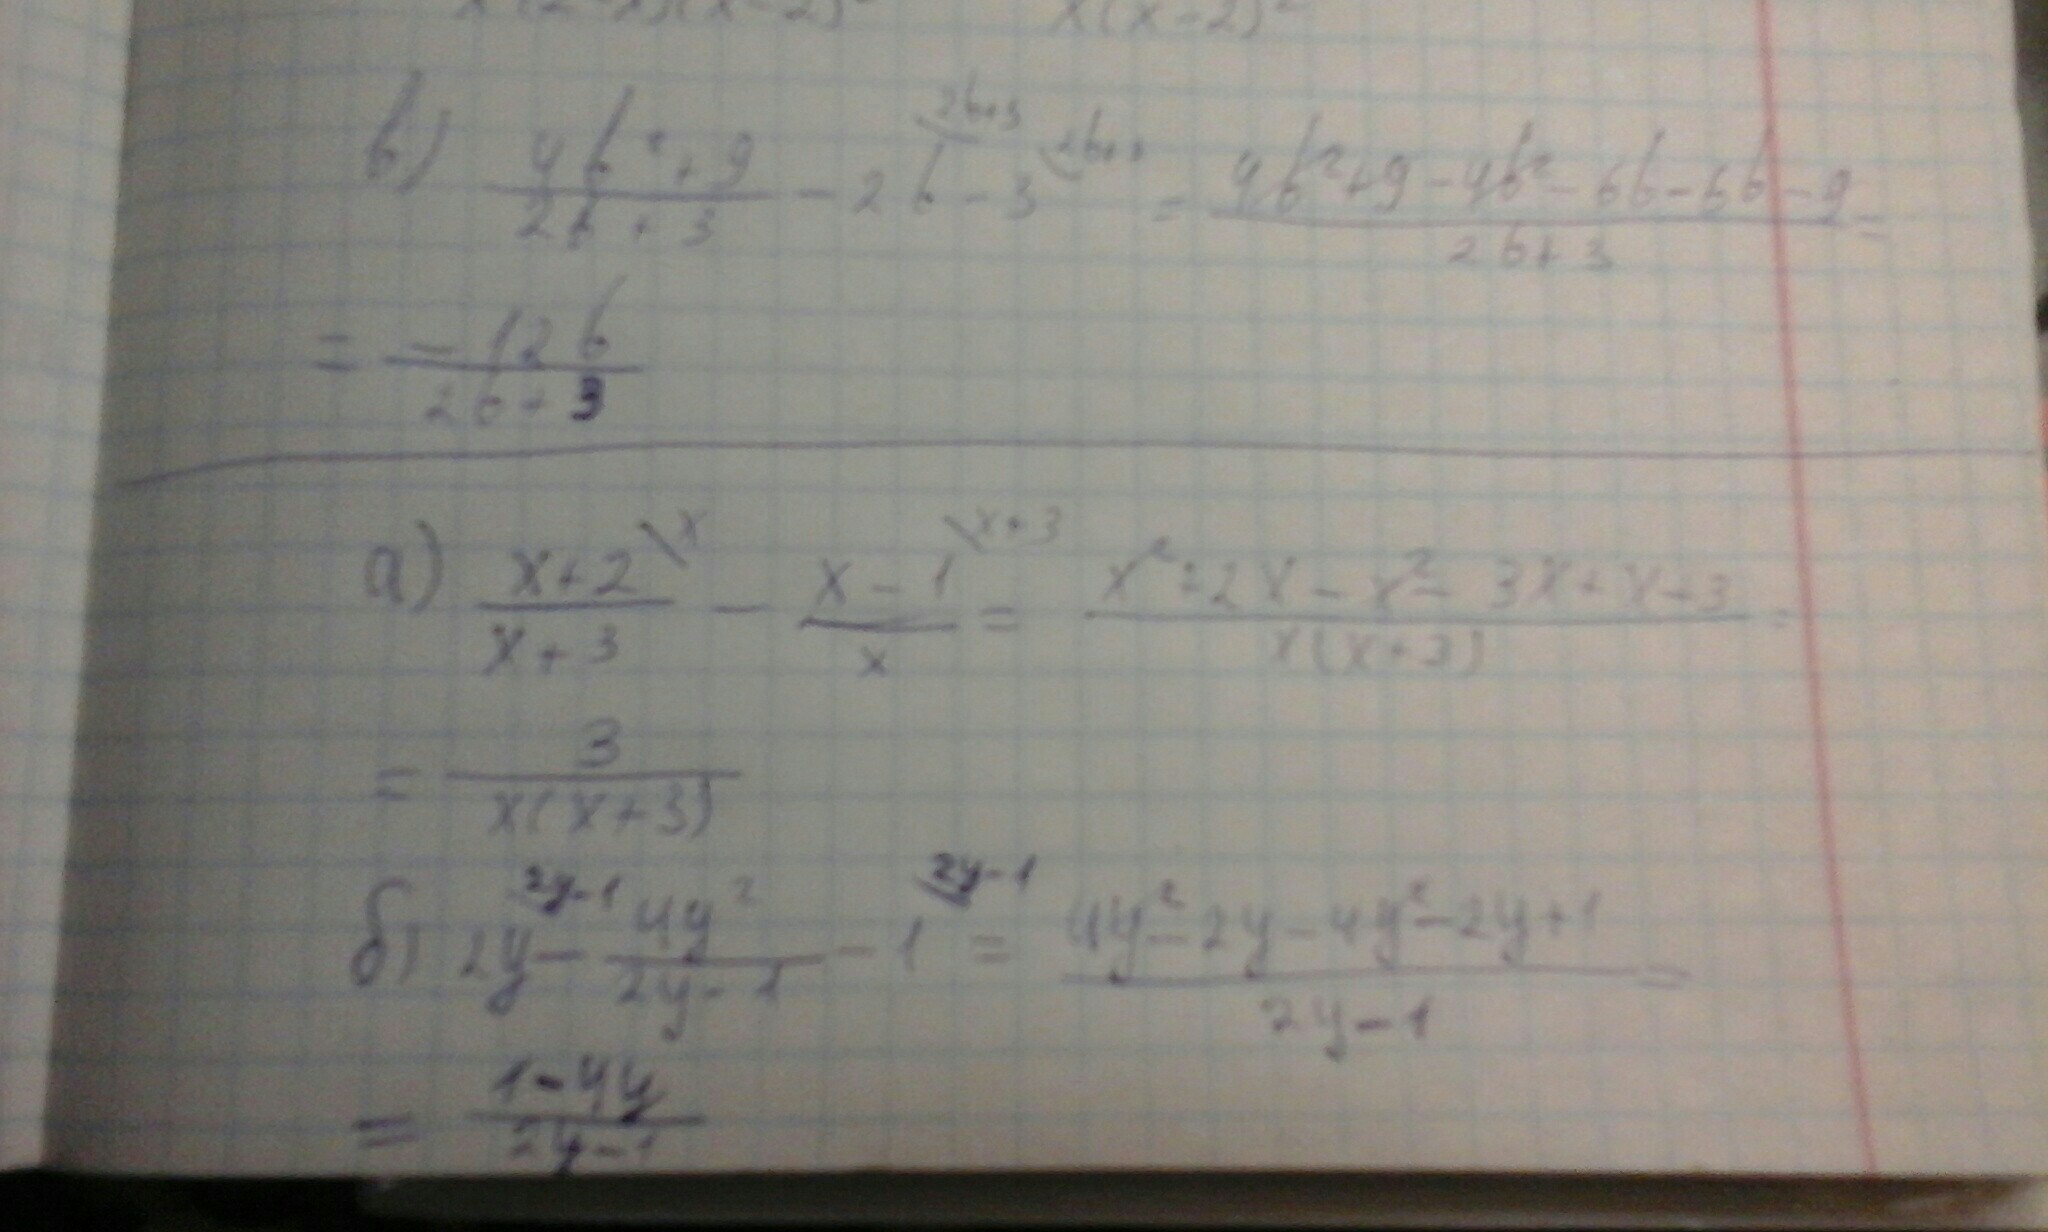 x(x-2)²
в) (4b²+9)/(2b+3) - 2b - 3 = (4b²+9-4b²-6b-6b-9)/(2b+3) =
2b+3 2b+3
= (-12b)/(2b+3)
а) (x+2)/(x+3) - (x-1)/x = (x²+2x-x²-3x+x+3)/(x(x+3)) =
\x \x+3
= 3/(x(x+3))
б) 2y - 4y²/(2y-1) - 1 = (4y²-2y-4y²-2y+1)/(2y-1) =
2y-1 2y-1
= (1-4y)/(2y-1)